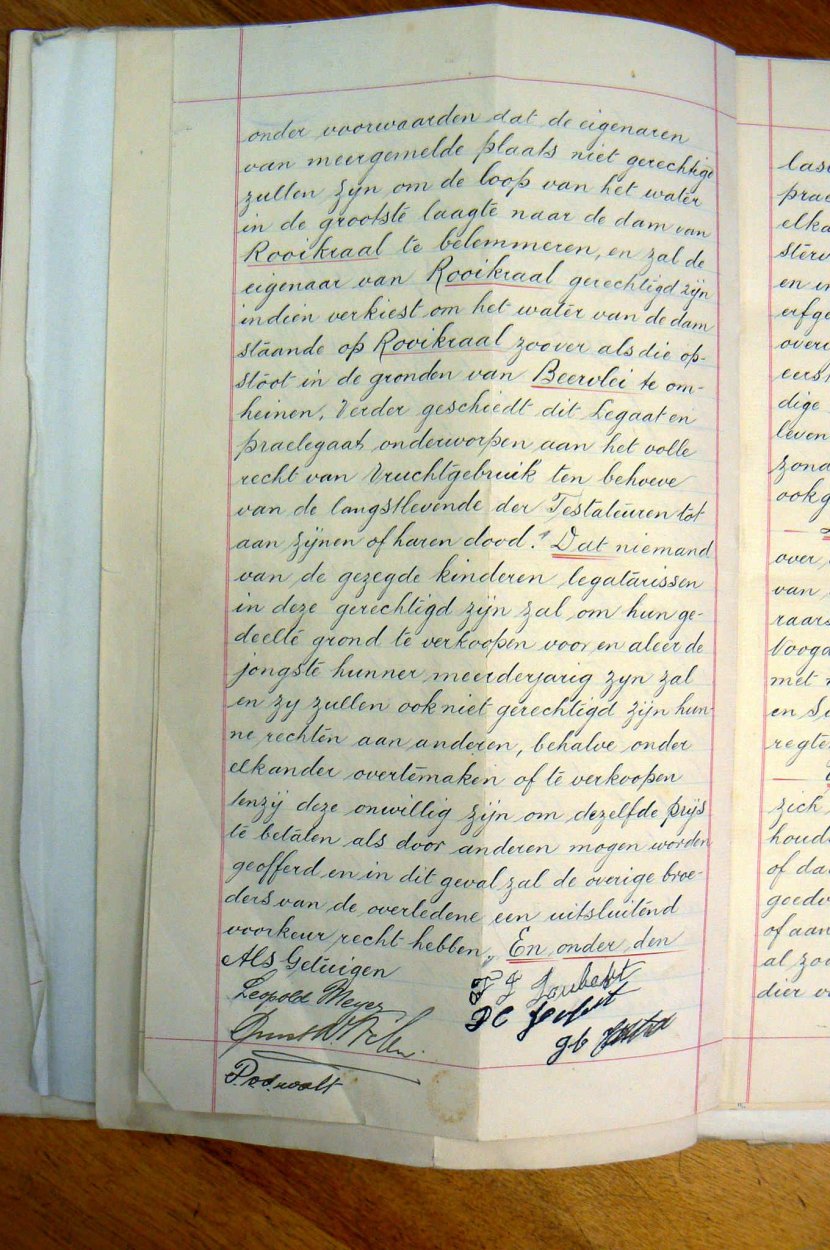 onder voorwaarden dat de eigenaren
van meergemelde plaats niet gerechtige
zullen zijn om de loop van het water
in de grootste laagte naar de dam van
Rooikraal te belemmeren, en zal de
eigenaar van Rooikraal gerechtigd zijn
indien verkiest om het water van de dam
staande op Rooikraal zoover als die op-
stoot in de gronden van Beervlei te om-
heinen. Verder geschiedt dit Legaat en
praelegaat onderworpen aan het volle
recht van Vruchtgebruik ten behoeve
van de langstlevende der Testateuren tot
aan zijnen of haren dood. Dat niemand
van de gezegde kinderen legatarissen
in deze gerechtigd zijn zal om hun ge-
deelte grond te verkoopen voor en aleer de
jongste hunner meerderjarig zyn zal
en zy zullen ook niet gerechtigd zijn hun-
ne rechten aan anderen, behalve onder
elkander overtemaken of te verkoopen
tenzij deze onwillig zijn om dezelfde prijs
te betalen als door anderen mogen worden
geofferd en in dit geval zal de overige broe-
ders van de overledene een uitsluitend
voorkeur recht hebben. En onder den
Als Getuigen
Leopold Meyer
J J Joubert
over
van
raars
met
en
zich
of dat
of aan
al zoo
dier